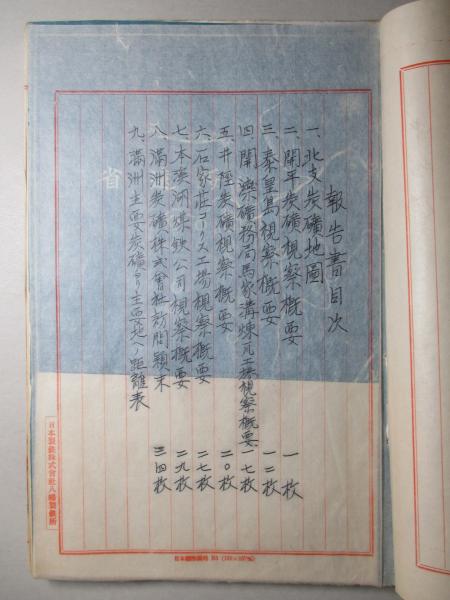 報告書目次
一、北支炭礦地圖 一枚
二、開平炭礦視察概要 一二枚
三、秦皇島視察概要 一七枚
四、開灤礦務局馬家溝煉瓦工場視察概要
五、井陘炭礦視察概要 二〇枚
六、石家莊コークス工場視察概要 二七枚
七、本溪湖煤鉄公司視察概要 二九枚
八、滿洲炭礦株式會社訪問顛末 三四枚
九、滿洲主要炭礦ヨリ主要地ヘノ距離表
省
日本製鉄株式會社八幡製鉄所
日本標準規格 B4